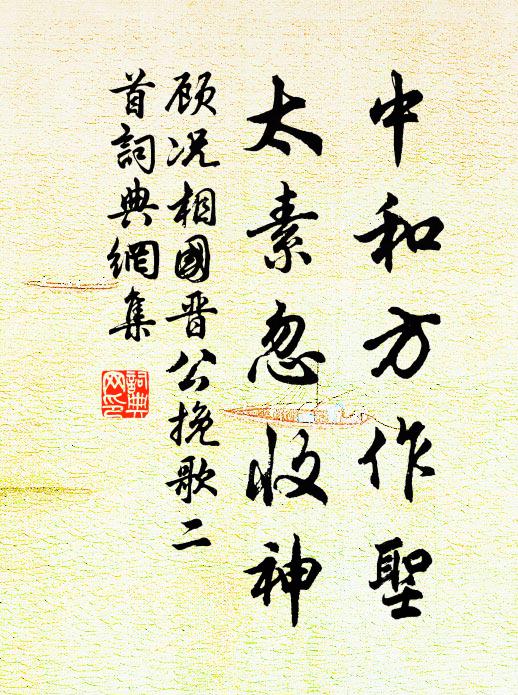 中和方作聖
太素忽收神
顾况相國晋公挽歌二
首詞典網集
詞典
网印